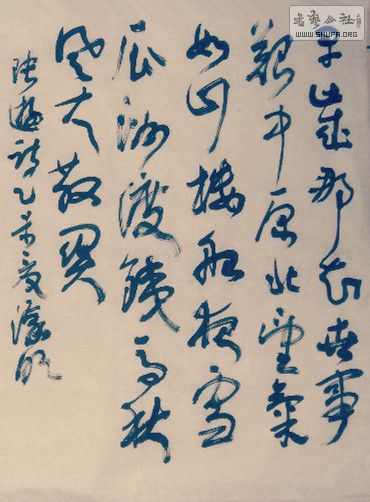 早歲那知世事
艱中原北望氣
如山樓船夜雪
瓜洲渡鐵马秋
风大散関
陆游诗乙未夏
书艺公社
WWW.SHUFA.ORG